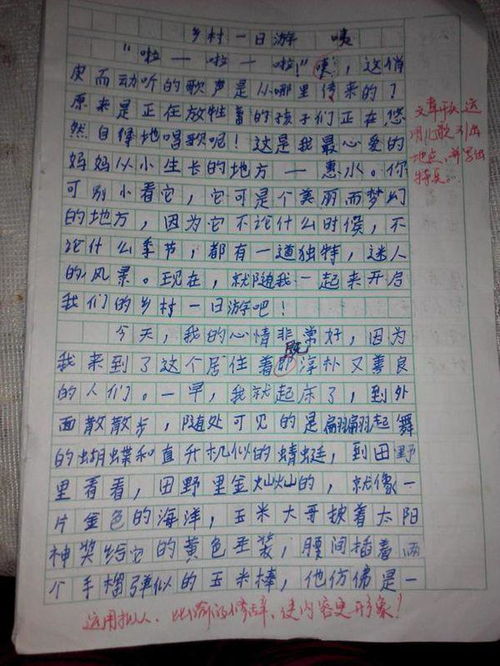 乡村一日游 咦
“啦—啦—啦！”咦，这俏
皮而动听的歌声是从哪里传来的？
原来是正在放牲着的孩子们正在悠
然自得地唱歌呢！这是我最心爱的
妈妈从小生长的地方—惠水。你
可别小看它，它可是个美丽而梦幻
的地方，因为它不论什么时候，不
论什么季节，都有一道独特，迷人
的风景。现在，就随我一起来开启
我们的乡村一日游吧！
文章开头运
用儿歌，引出
地点，并写出
特点。
今天，我的心情非常好，因为
既
我来到了这个居住着的淳朴又善良
的人们。一早，我就起床了，到外
面散散步，随处可见的是翩翩起舞
的蝴蝶和直升机似的蜻蜓，到田野
里看看，田野里金灿灿的，就像一
片金色的海洋，玉米大哥披着太阳
神奖给它的黄色圣装，腰间插着两
个手榴弹似的玉米棒，他仿佛是一
运用拟人、比喻的修辞，使内容更形象！